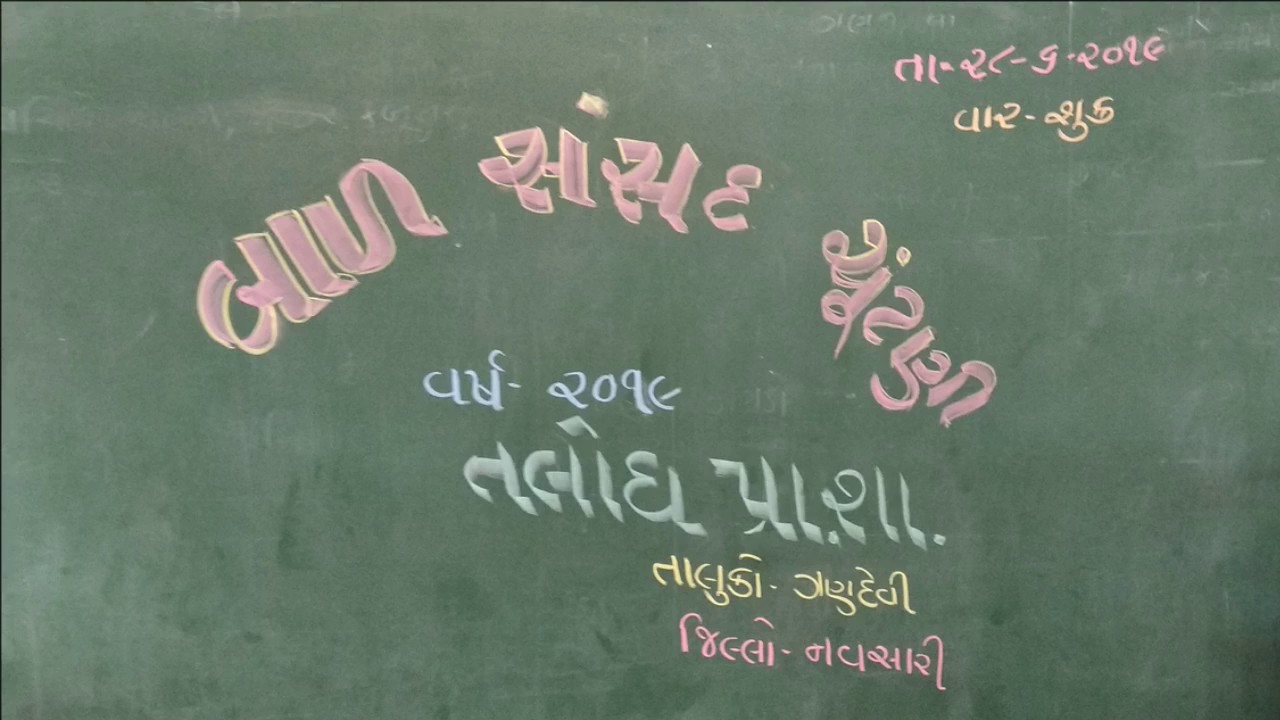 તા-૨૮-૬-૨૦૧૯
વાર-શુક્ર
બાળ સાંસદ ચૂંટણી
વર્ષ- ૨૦૧૯
તલોધ પ્રા.શા.
તાલુકો- ગણદેવી
જિલ્લો- નવસારી